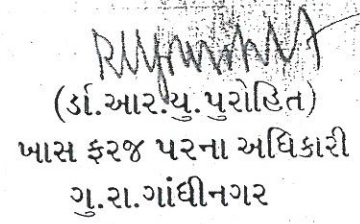 (ર્ડા.આર.યુ.પુરોહિત)
ખાસ ફરજ પરના અધિકારી
ગુ.રા.ગાંધીનગર